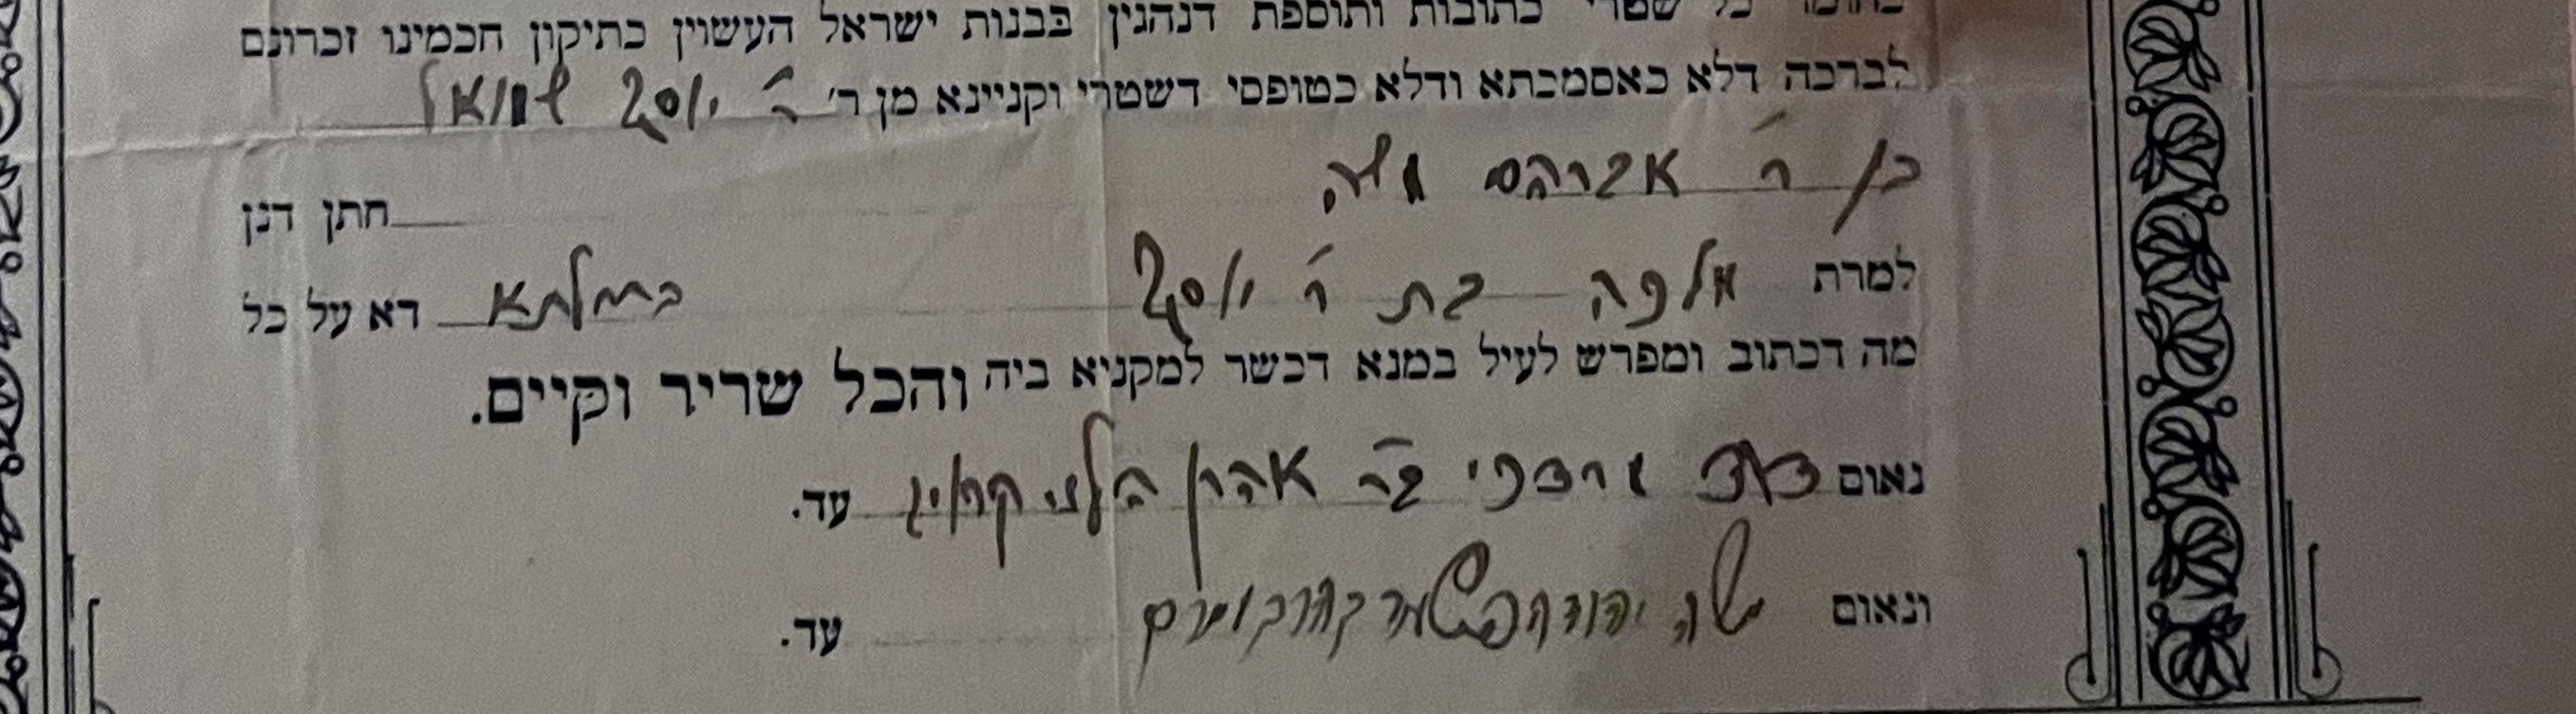 כחומר כל שטרי כתובות ותוספת דנהגין בבנות ישראל העשוין כתיקון חכמינו זכרונם
לברכה דלא כאסמכתא ודלא כטופסי דשטרי וקניינא מן ר׳ ר׳ יוסף שמואל
בן ר׳ אברהם משה חתן דנן
למרת מלכה בת ר׳ יוסף בתולתא דא על כל
מה דכתוב ומפרש לעיל במנא דכשר למקניא ביה והכל שריר וקיים.
נאום מרדכי בר אהרן הלוי עד.
ונאום משה יהודה עד.